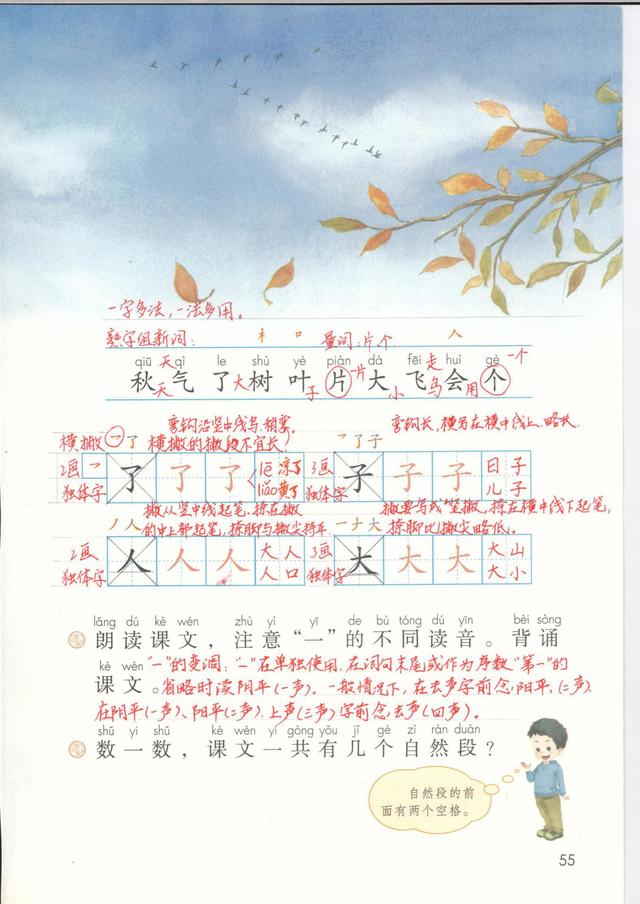 一字多法，一法多用。
熟字组新词： 木 口 量词：片、个 人
qiū qì le shù yè piàn dà fēi huì gè
秋 天 天 气 了 大 树 叶 子 片 一片 大 小 飞 走 鸟 会 用 个 一个
弯钩沿竖中线写、稍弯， 弯钩长，横写在横中线上、略长
横撇 乛了 横撇的撇段不宜长。 乛了子
2画 乛 了 了 了 le 凉了 3画 子 子 子 日 子
独体字 liǎo 黄了 独体字 儿 子
撇从竖中线起笔，捺在撇 撇要写成“竖撇”，捺在横中线下起笔，
丿人 的中上部起笔，捺脚与撇尖持平 一ナ大 捺脚比撇尖略低。
2画 人 人 人 大 人 3画 大 大 大 大 山
独体字 人 口 独体字 大 小
lǎng dú kè wén zhù yì yī de bù tóng dú yīn bèi sòng
朗 读 课 文 ， 注 意 “一” 的 不 同 读 音 。 背 诵
kè wén “一”的变调：“一”在单独使用、在词句末尾或作为序数“第一”的
课 文 。省略时读阴平（一声）。一般情况下，在去声字前念阳平，（二声）
在阴平（一声）、阳平（二声）、上声（三声）字前念去声（四声）。
shǔ yi shǔ kè wén yí gòng yǒu jǐ gè zì rán duàn
数 一 数 ， 课 文 一 共 有 几 个 自 然 段 ？
自然段的前
面有两个空格。
55